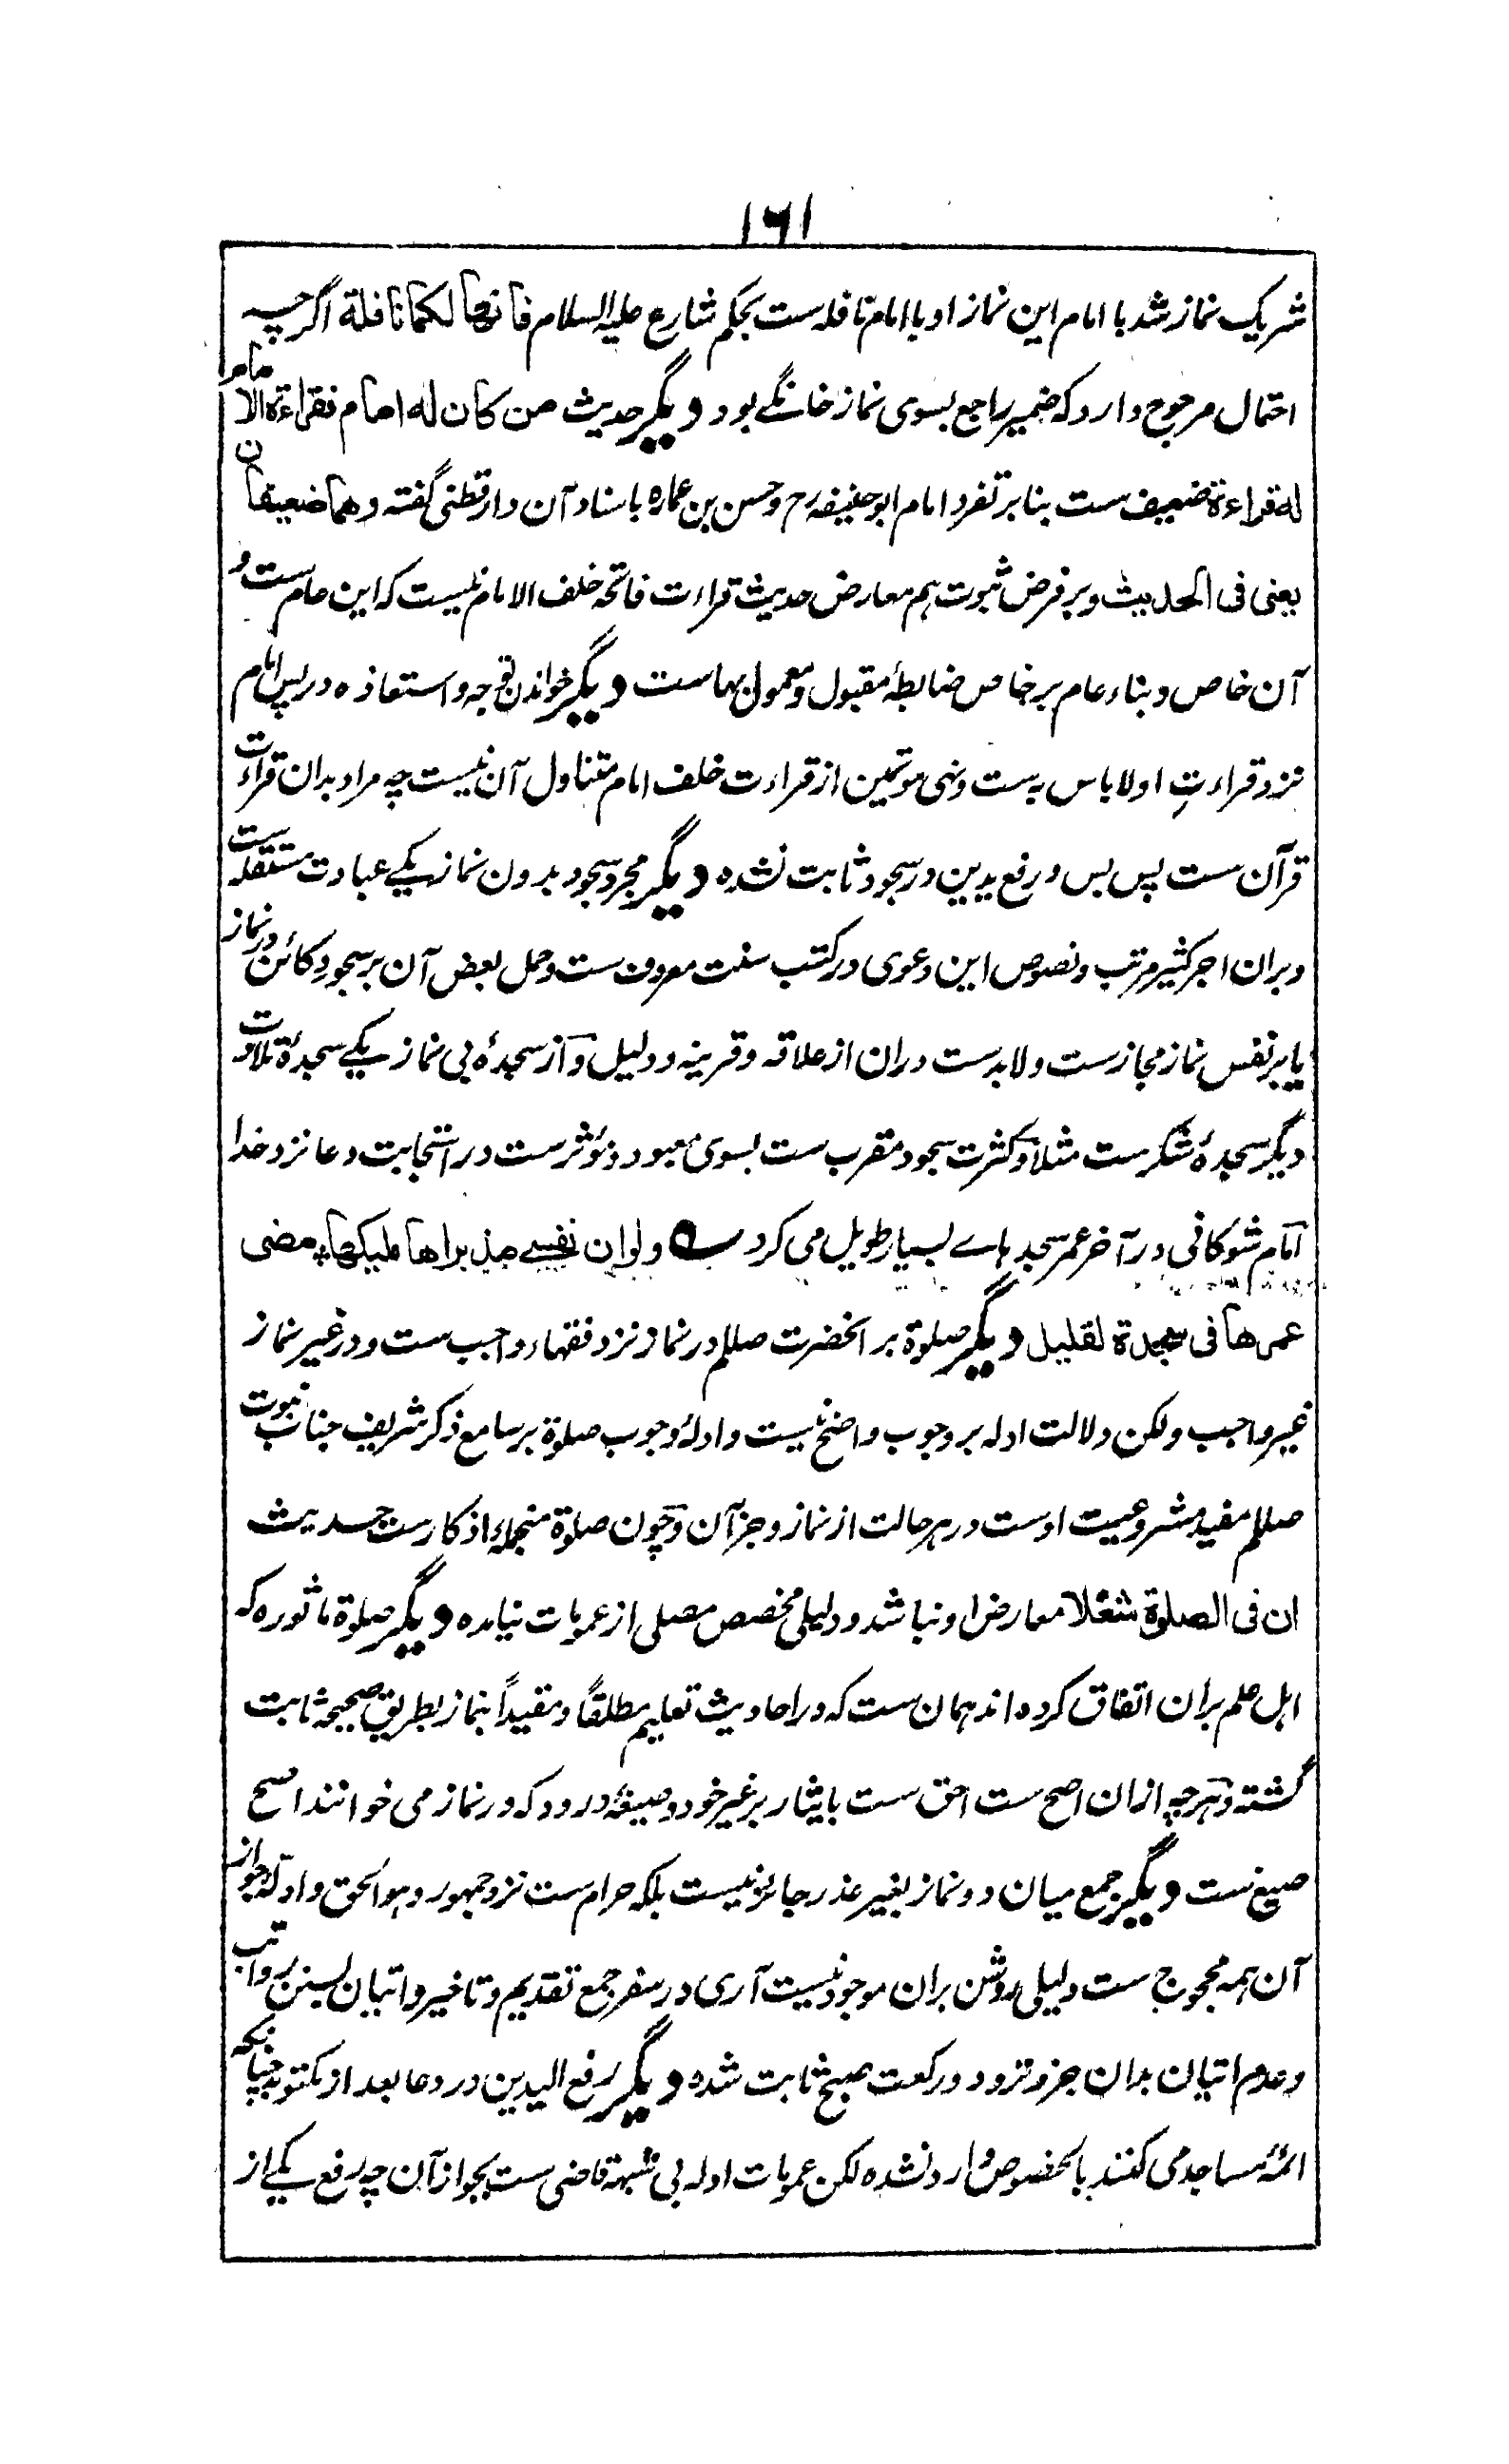 ۱۶۱
شریک نماز شد با امام این نماز او با امام نافله ست بحکم شارع علیه السلام فانها لکما نافلة اگرچه
احتمال مرجوح دارد که ضمیر راجع بسوی نماز خانگے بود دیگر حدیث من کان له امام فقراءة الامام
له قراءة ضعیف ست بنا بر تفرد امام ابوحنیفه رح وحسن بن عماره باسناد آن دارقطنی گفته وهما ضعیفان
یعنی فی الحدیث وبر فرض ثبوت هم معارض حدیث قراءت فاتحه خلف الامام نیست که این عام ست و
آن خاص وبناء عام بر خاص ضابطۀ مقبول ومعمول بهاست دیگر خواندن توجه واستعاذه در پس امام
نزد قراءتِ او لاباس به ست ونهی موتمین از قراءت خلف امام متناول آن نیست چه مراد بدان قراءت
قرآن ست پس بس ورفع یدین در سجود ثابت نشده دیگر مجرد سجود بدون نماز یکے عبادت مستقله ست
وبران اجر کثیر مرتب ونصوص این دعوی در کتب سنت معروف ست وحمل بعض آن بر سجودِ کائن در نماز
یا بر نفس نماز مجاز ست ولابد ست دران از علاقه وقرینه ودلیل وآز سجدۀ بی نماز یکے سجدۀ تلاوت
دیگر سجدۀ شکر ست مثلاً وکثرت سجود مقرب ست بسوی معبود ومؤثر ست در استجابت دعا نزد خدا
امام شوکانی در آخر عمر سجد ہاے بسیار طویل می کرد ولو ان نفسے مذ براها ملیکها مضی
عمرها فی سجدة لقلیل دیگر صلوة بر انحضرت صللم در نماز نزد فقهاء واجب ست ودر غیر نماز
غیر واجب ولکن دلالت ادله بر وجوب واضح نیست وادلۀ وجوب صلوة بر سامع ذکر شریف جناب نبوت
صللم مفید مشروعیت اوست در هر حالت از نماز وجز آن وچون صلوة منجملۀ اذکار ست حدیث
ان فی الصلوة شغلا معارض او نباشد ودلیلی مخصص مصلی از عمومات نیامده دیگر صلوة ماثوره که
اهل علم بران اتفاق کرده اند همان ست که در احادیث تعلیم مطلقاً ومقیداً بنماز بطریق صحیحه ثابت
گشته وهرچه ازان اصح ست احق ست بایثار بر غیر خود وصیغۀ درود که در نماز می خوانند اصح
صیغ ست دیگر جمع میان دو نماز بغیر عذر جائز نیست بلکه حرام ست نزد جمهور وهو الحق وادلۀ جواز
آن همه محجوج ست دلیلی روشن بران موجود نیست آری در سفر جمع تقدیم وتاخیر واتیان بسنن رواتب
وعدم اتیان بدان جز وتر ودو رکعت صبح ثابت شده دیگر رفع الیدین در دعا بعد از مکتوبه چنانکه
ائمۀ مساجد می کنند بالخصوص وارد نشده لکن عمومات ادله بی شبهة قاضی ست بجواز آن چه رفع یکے از